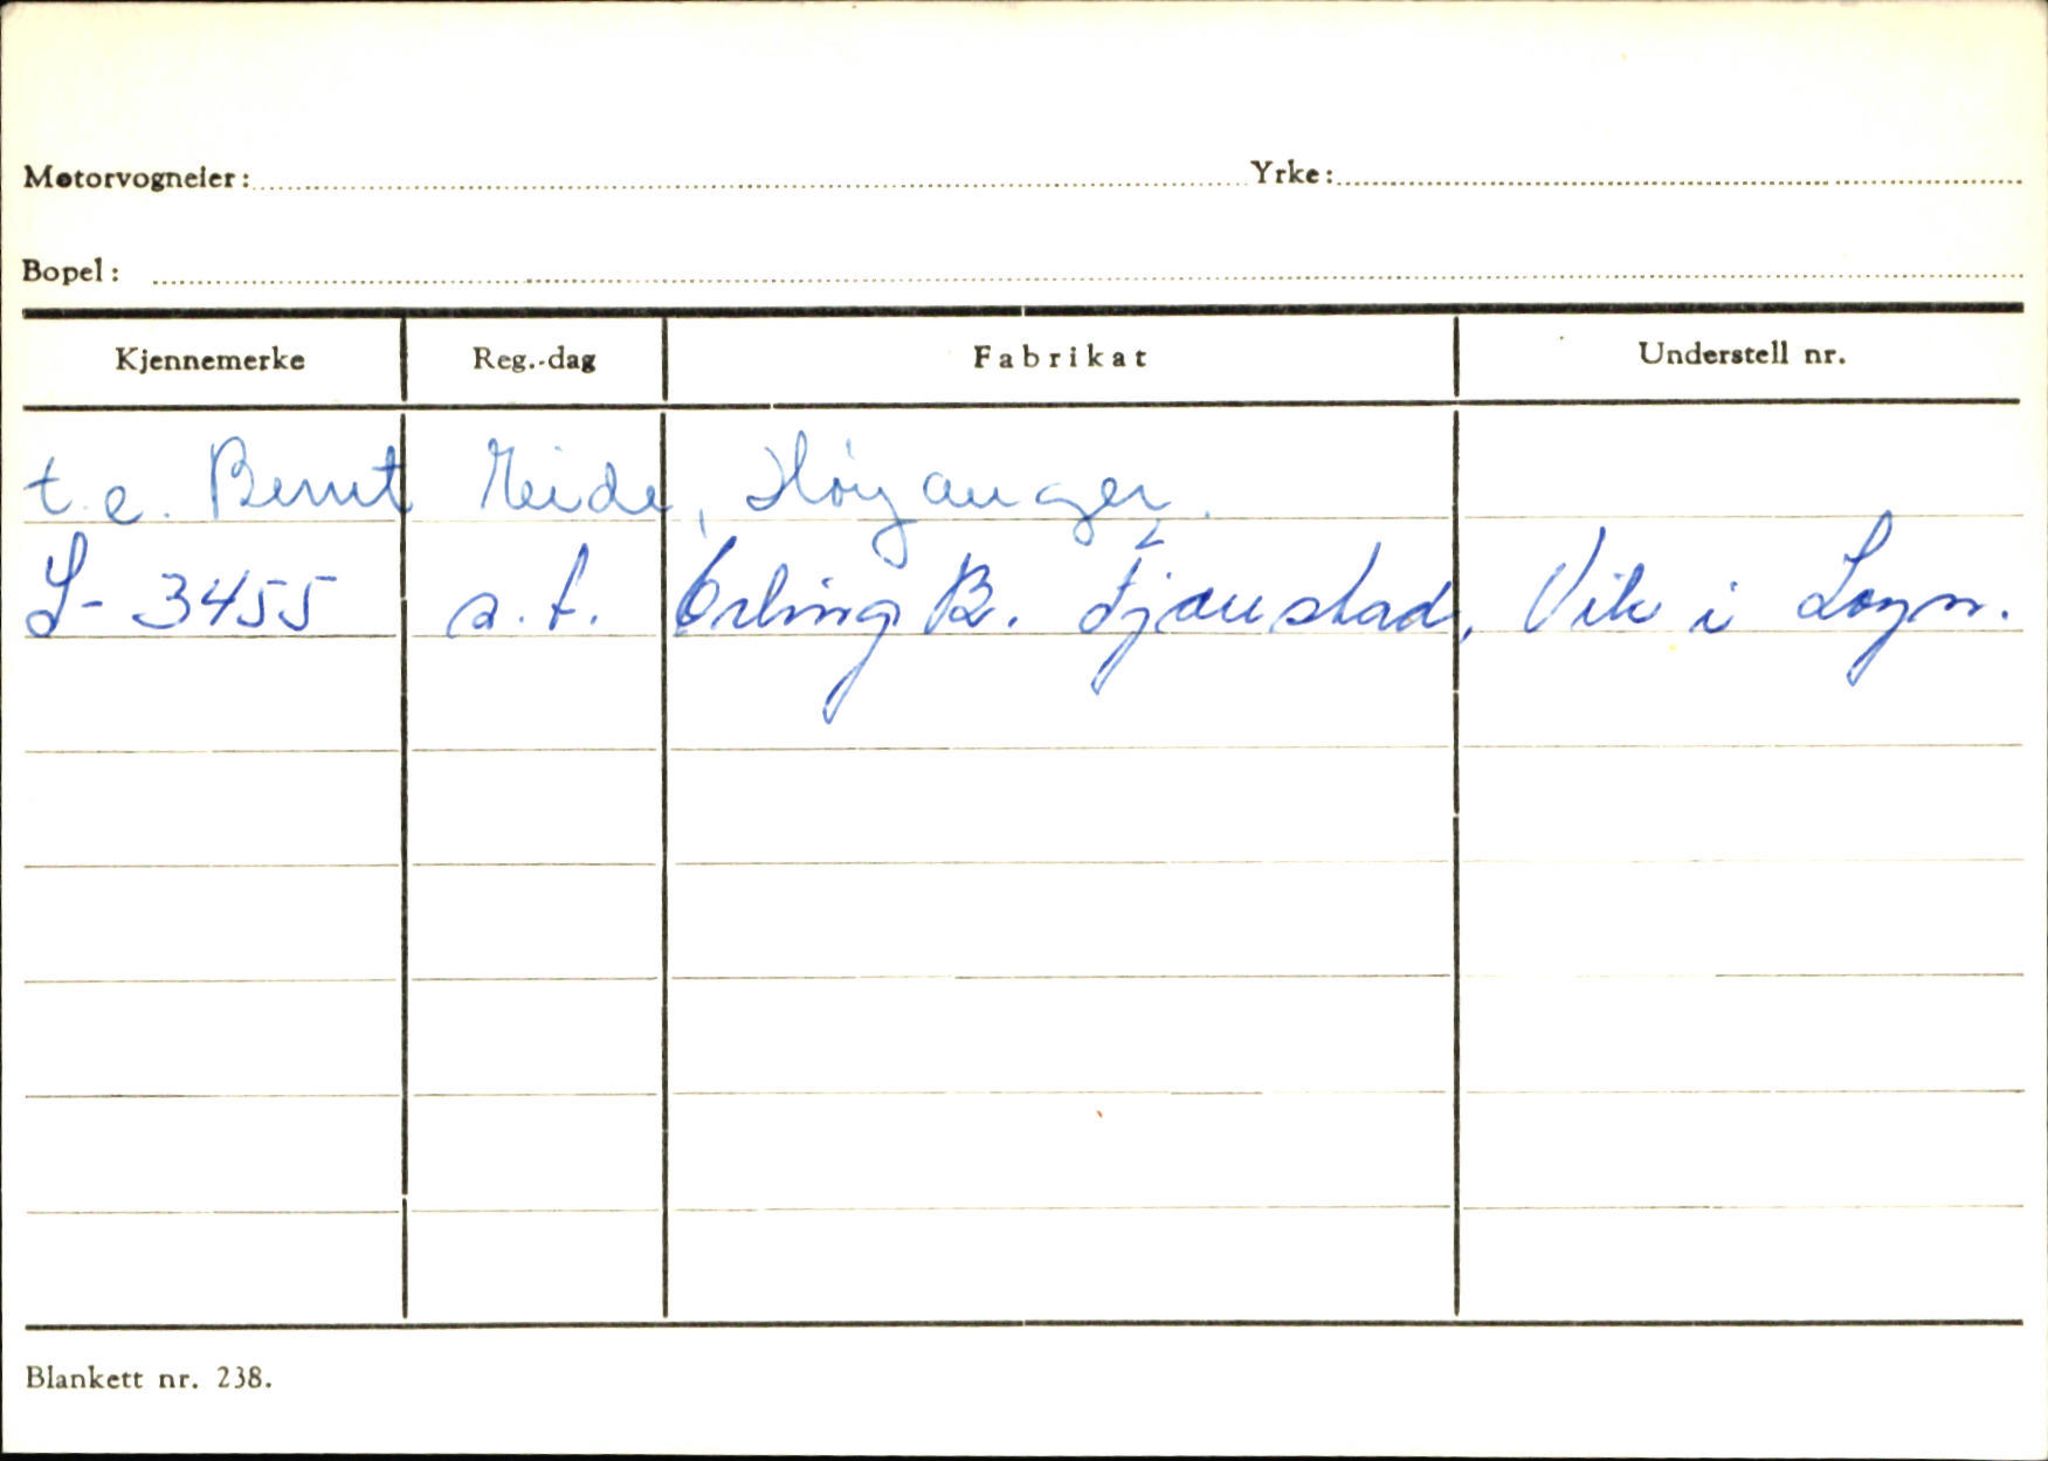 Motorvogneier: Yrke:
Bopel:
Kjennemerke Reg.-dag Fabrikat Understell nr.
t.e. Bernt Heide, Høyanger.
S- 3455 s.t. Erling B. Fjænstad, Vik i Sogn.
Blankett nr. 238.